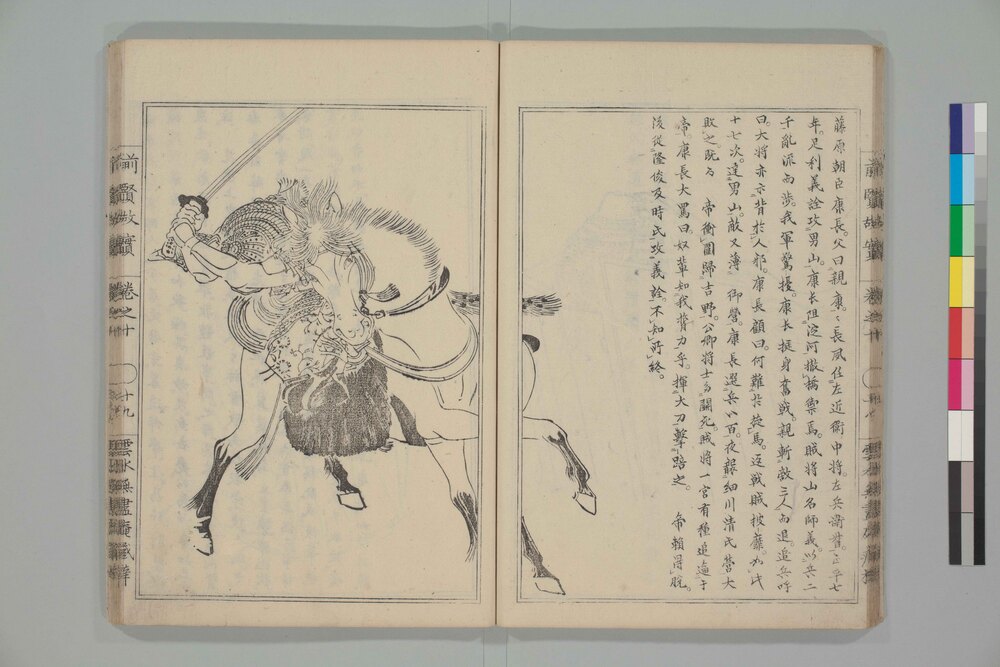 藤原朝臣康長。父曰親康。康長夙仕左近衛中将。左兵衛督。正平七
年。足利義詮攻男山。康长阻淀河撤橋禦焉。賊将山名師義。以兵二
千亂派而渉。我軍驚擾。康长挺身奮戦。親斬數三人而退。追兵呼
曰。大将亦示背於人邪。康長顧曰。何難於旋馬。返戦。賊披靡。如此
十七次。達男山。敵又薄御營。康長選兵八百。夜襲細川清氏營大
敗之。既而帝衝圍歸吉野。公卿将士多鬪死。賊将一宮有種追逼于
帝。康長大罵曰。奴輩知我膂力乎。揮大刀擊踣之。帝頼得脱。
後從隆俊及時氏攻義詮。不知所終。
前賢故實
卷之十
十九
雲水無盡庵藏梓